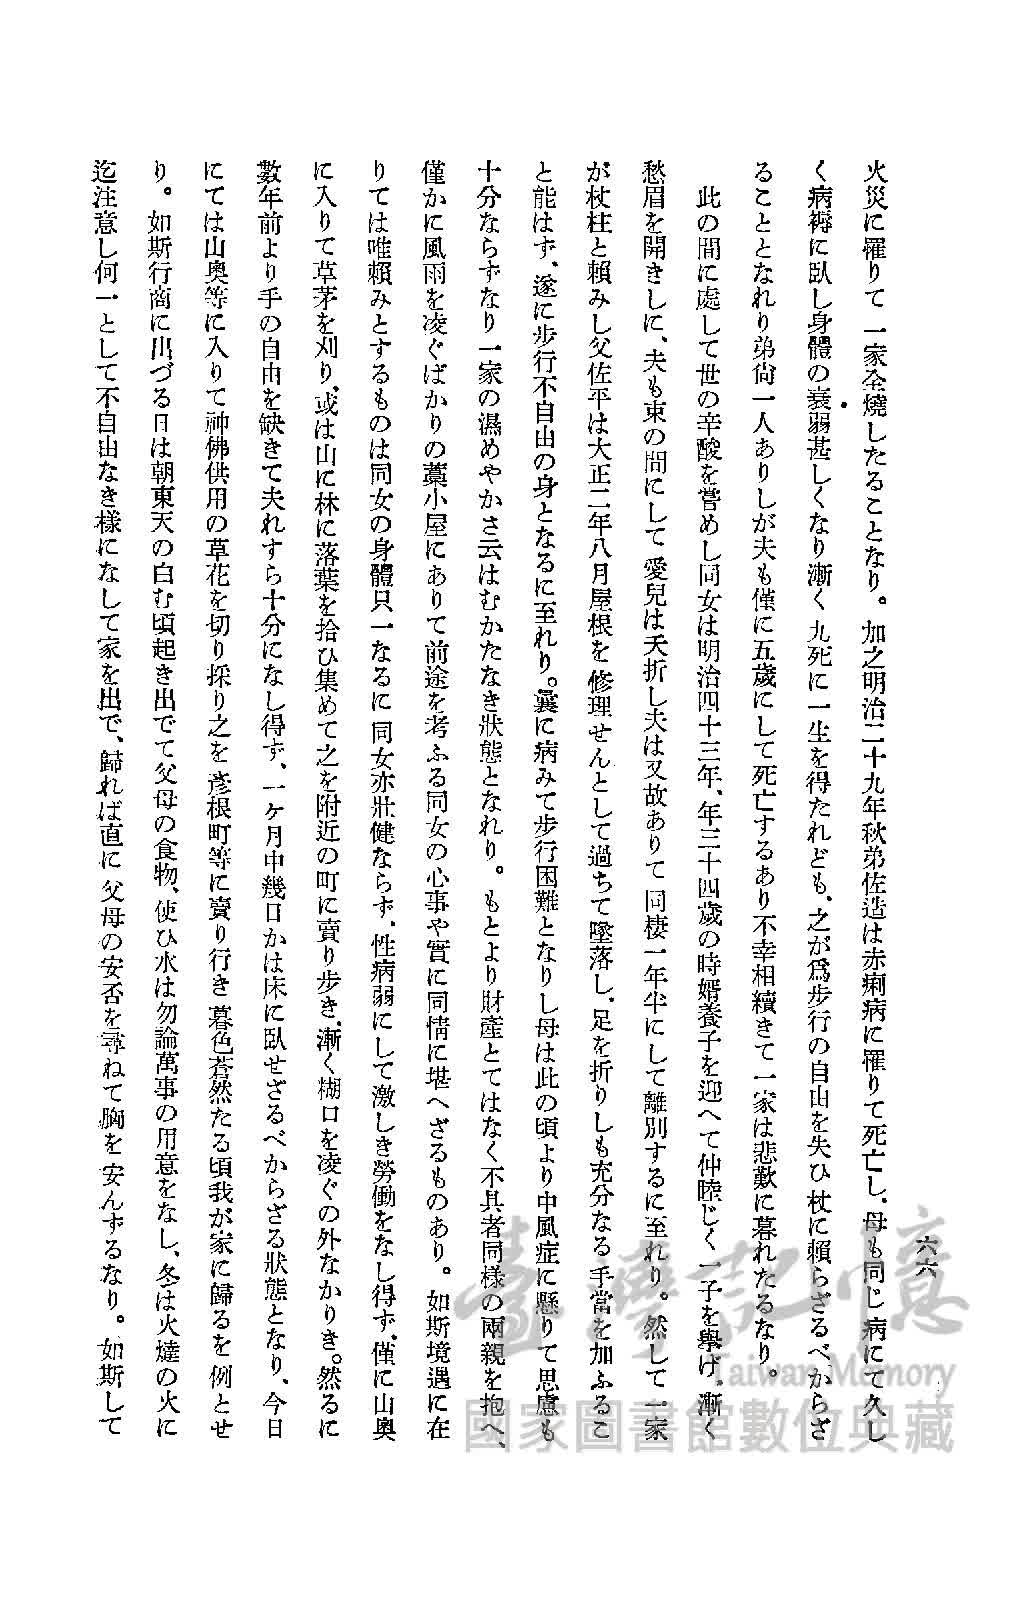 六六
火災に罹りて一家全燒したることなり。加之明治二十九年秋弟佐造は赤痢病に罹りて死亡し、母も同じ病にて久し
く病褥に臥し身體の衰弱甚しくなり漸く九死に一生を得たれども、之が爲步行の自由を失ひ杖に賴らざるべからざ
ることとなれり弟尙一人ありしが夫も僅に五歲にして死亡するあり不幸相續きて一家は悲歎に暮れたるなり。
此の間に處して世の辛酸を嘗めし同女は明治四十三年、年三十四歲の時婿養子を迎へて仲睦じく一子を擧げ、漸く
愁眉を開きしに、夫も束の間にして愛兒は夭折し夫は又故ありて同棲一年半にして離別するに至れり。然して一家
が杖柱と賴みし父佐平は大正二年八月屋根を修理せんとして過ちて墜落し、足を折りしも充分なる手當を加ふるこ
と能はず、遂に步行不自由の身となるに至れり。曩に病みて步行困難となりし母は此の頃より中風症に懸りて思慮も
十分ならずなり一家の濕めやかさ云はむかたなき狀態となれり。もとより財產とてはなく不具者同樣の兩親を抱へ、
僅かに風雨を凌ぐばかりの藁小屋にありて前途を考ふる同女の心事や實に同情に堪へざるものあり。如斯境遇に在
りては唯賴みとするものは同女の身體只一なるに同女亦壯健ならず、性病弱にして激しき勞働をなし得ず、僅に山奧
に入りて草茅を刈り、或は山に林に落葉を拾ひ集めて之を附近の町に賣り步き、漸く糊口を凌ぐの外なかりき。然るに
數年前より手の自由を缺きて夫れすら十分になし得ず、一ヶ月中幾日かは床に臥せざるべからざる狀態となり、今日
にては山奧等に入りて神佛供用の草花を切り採り之を彥根町等に賣り行き暮色蒼然たる頃我が家に歸るを例とせ
り。如斯行商に出づる日は朝東天の白む頃起き出でて父母の食物、使ひ水は勿論萬事の用意をなし、冬は火燵の火に
迄注意し何一として不自由なき樣になして家を出で、歸れば直に父母の安否を尋ねて胸を安んずるなり。如斯して
臺灣記憶
Taiwan Memory
國家圖書館數位典藏